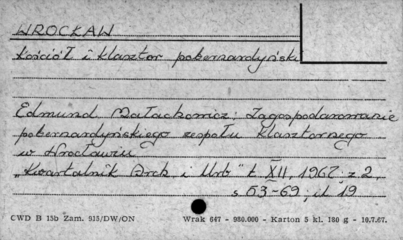 WROCŁAW
Kościół i klasztor pobernardyński
Edmund Małachowicz: Zagospodarowanie
pobernardyńskiego zespołu klasztornego
w Wrocławiu
"Kwartalnik Arch i Urb" t XII, 1967 z 2,
s 53-69, il 19
CWD B 15b Zam. 935/DW/ON Wrak 647 - 980.000 - Karton 5 kl. 180 g - 10.7.67.